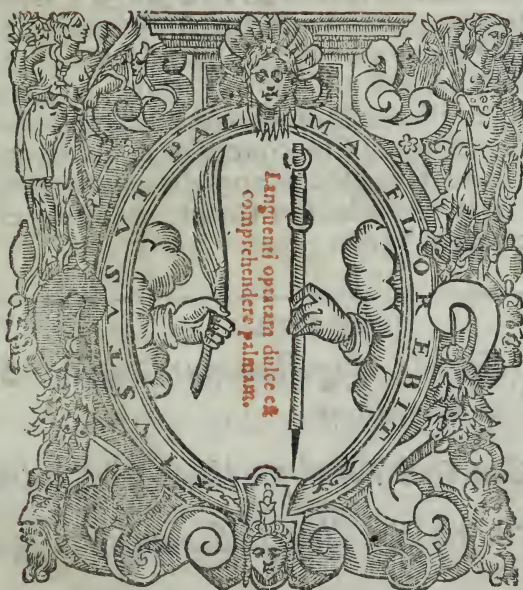 IVSTVS VT PALMA FLOREBIT
Languenti optatam dulce eſt
comprehendere palmam.